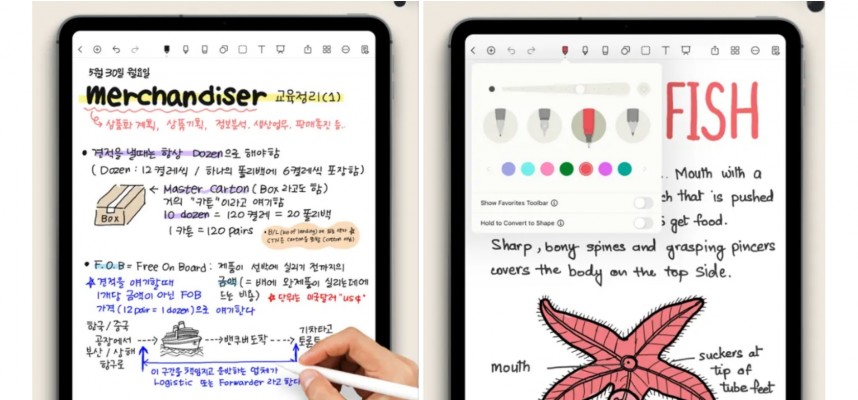 5월 30일 월요일
merchandiser 교육정리(1)
상품화 계획, 상품기획, 정보분석, 생산업무, 판매촉진 등..
• 견적을 낼때는 항상 Dozen으로 해야함
(Dozen : 12 켤레씩 / 하나의 폴리백에 6켤레씩 포장함)
Master Carton (Box 라고도 함)
거의 "카톤"이라고 얘기함
10 dozen = 120 켤레 = 20 폴리백
1 카톤 = 120 pairs
Box
• F.O.B = Free On Board : 제품이 선박에 실리기 전까지의
금액 (= 배에 완제품이 실리는데에
드는 비용)
☆ 단위는 미국달러 "US$"
☆ 견적을 얘기할때
1개당 금액이 아닌 FOB
가격 (12 pair = 1 dozen)으로 얘기한다
한국/중국
공장에서
부산/상해
항구로
밴쿠버도착
기차타고
토론토
이 구간을 책임지고 운반하는 업체가
Logistic 또는 Forwarder 라고 한다
Show Favorites Toolbar
Hold to Convert to Shape
FISH
Mouth with a
that is pushed
get food.
Sharp, bony spines and grasping pincers
covers the body on the top side.
mouth
suckers at
tip of
tube feet